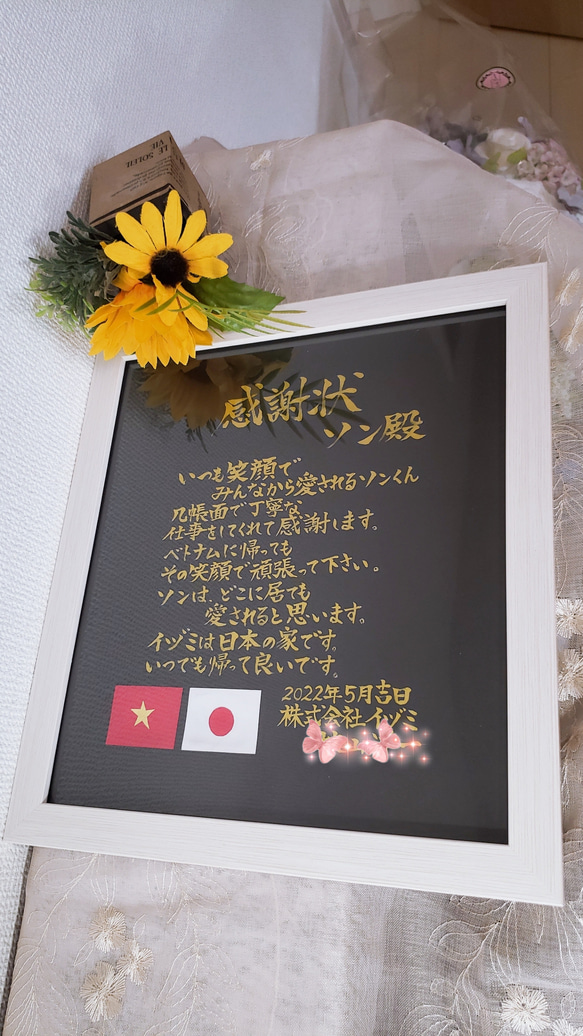 LE SOLEIL
VIE
感謝状
ソン殿
いつも笑顔で
みんなから愛されるソンくん
几帳面で丁寧な
仕事をしてくれて感謝します。
ベトナムに帰っても
その笑顔で頑張って下さい。
ソンは、どこに居ても
愛されると思います。
イヅミは日本の家です。
いつでも帰って良いです。
2022年5月吉日
株式会社イヅミ